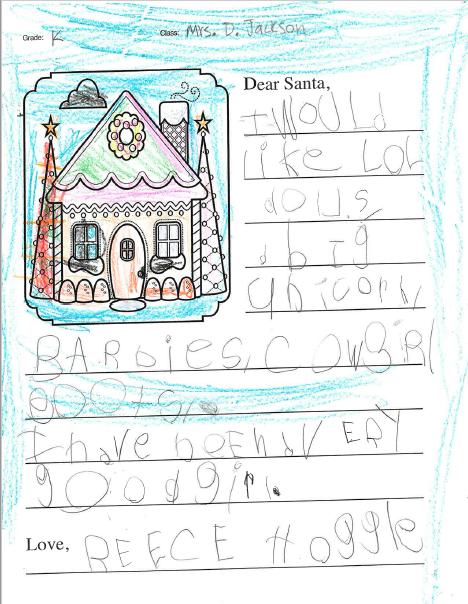 Grade: K Class: Mrs. D. Jackson
Dear Santa,
I WOULd
like LOL
dolls
a big
Unicorn,
BARbies, COWGiRl
BOOts,
I have beEn a V ERY
good girl.
Love, REECE Hoggle